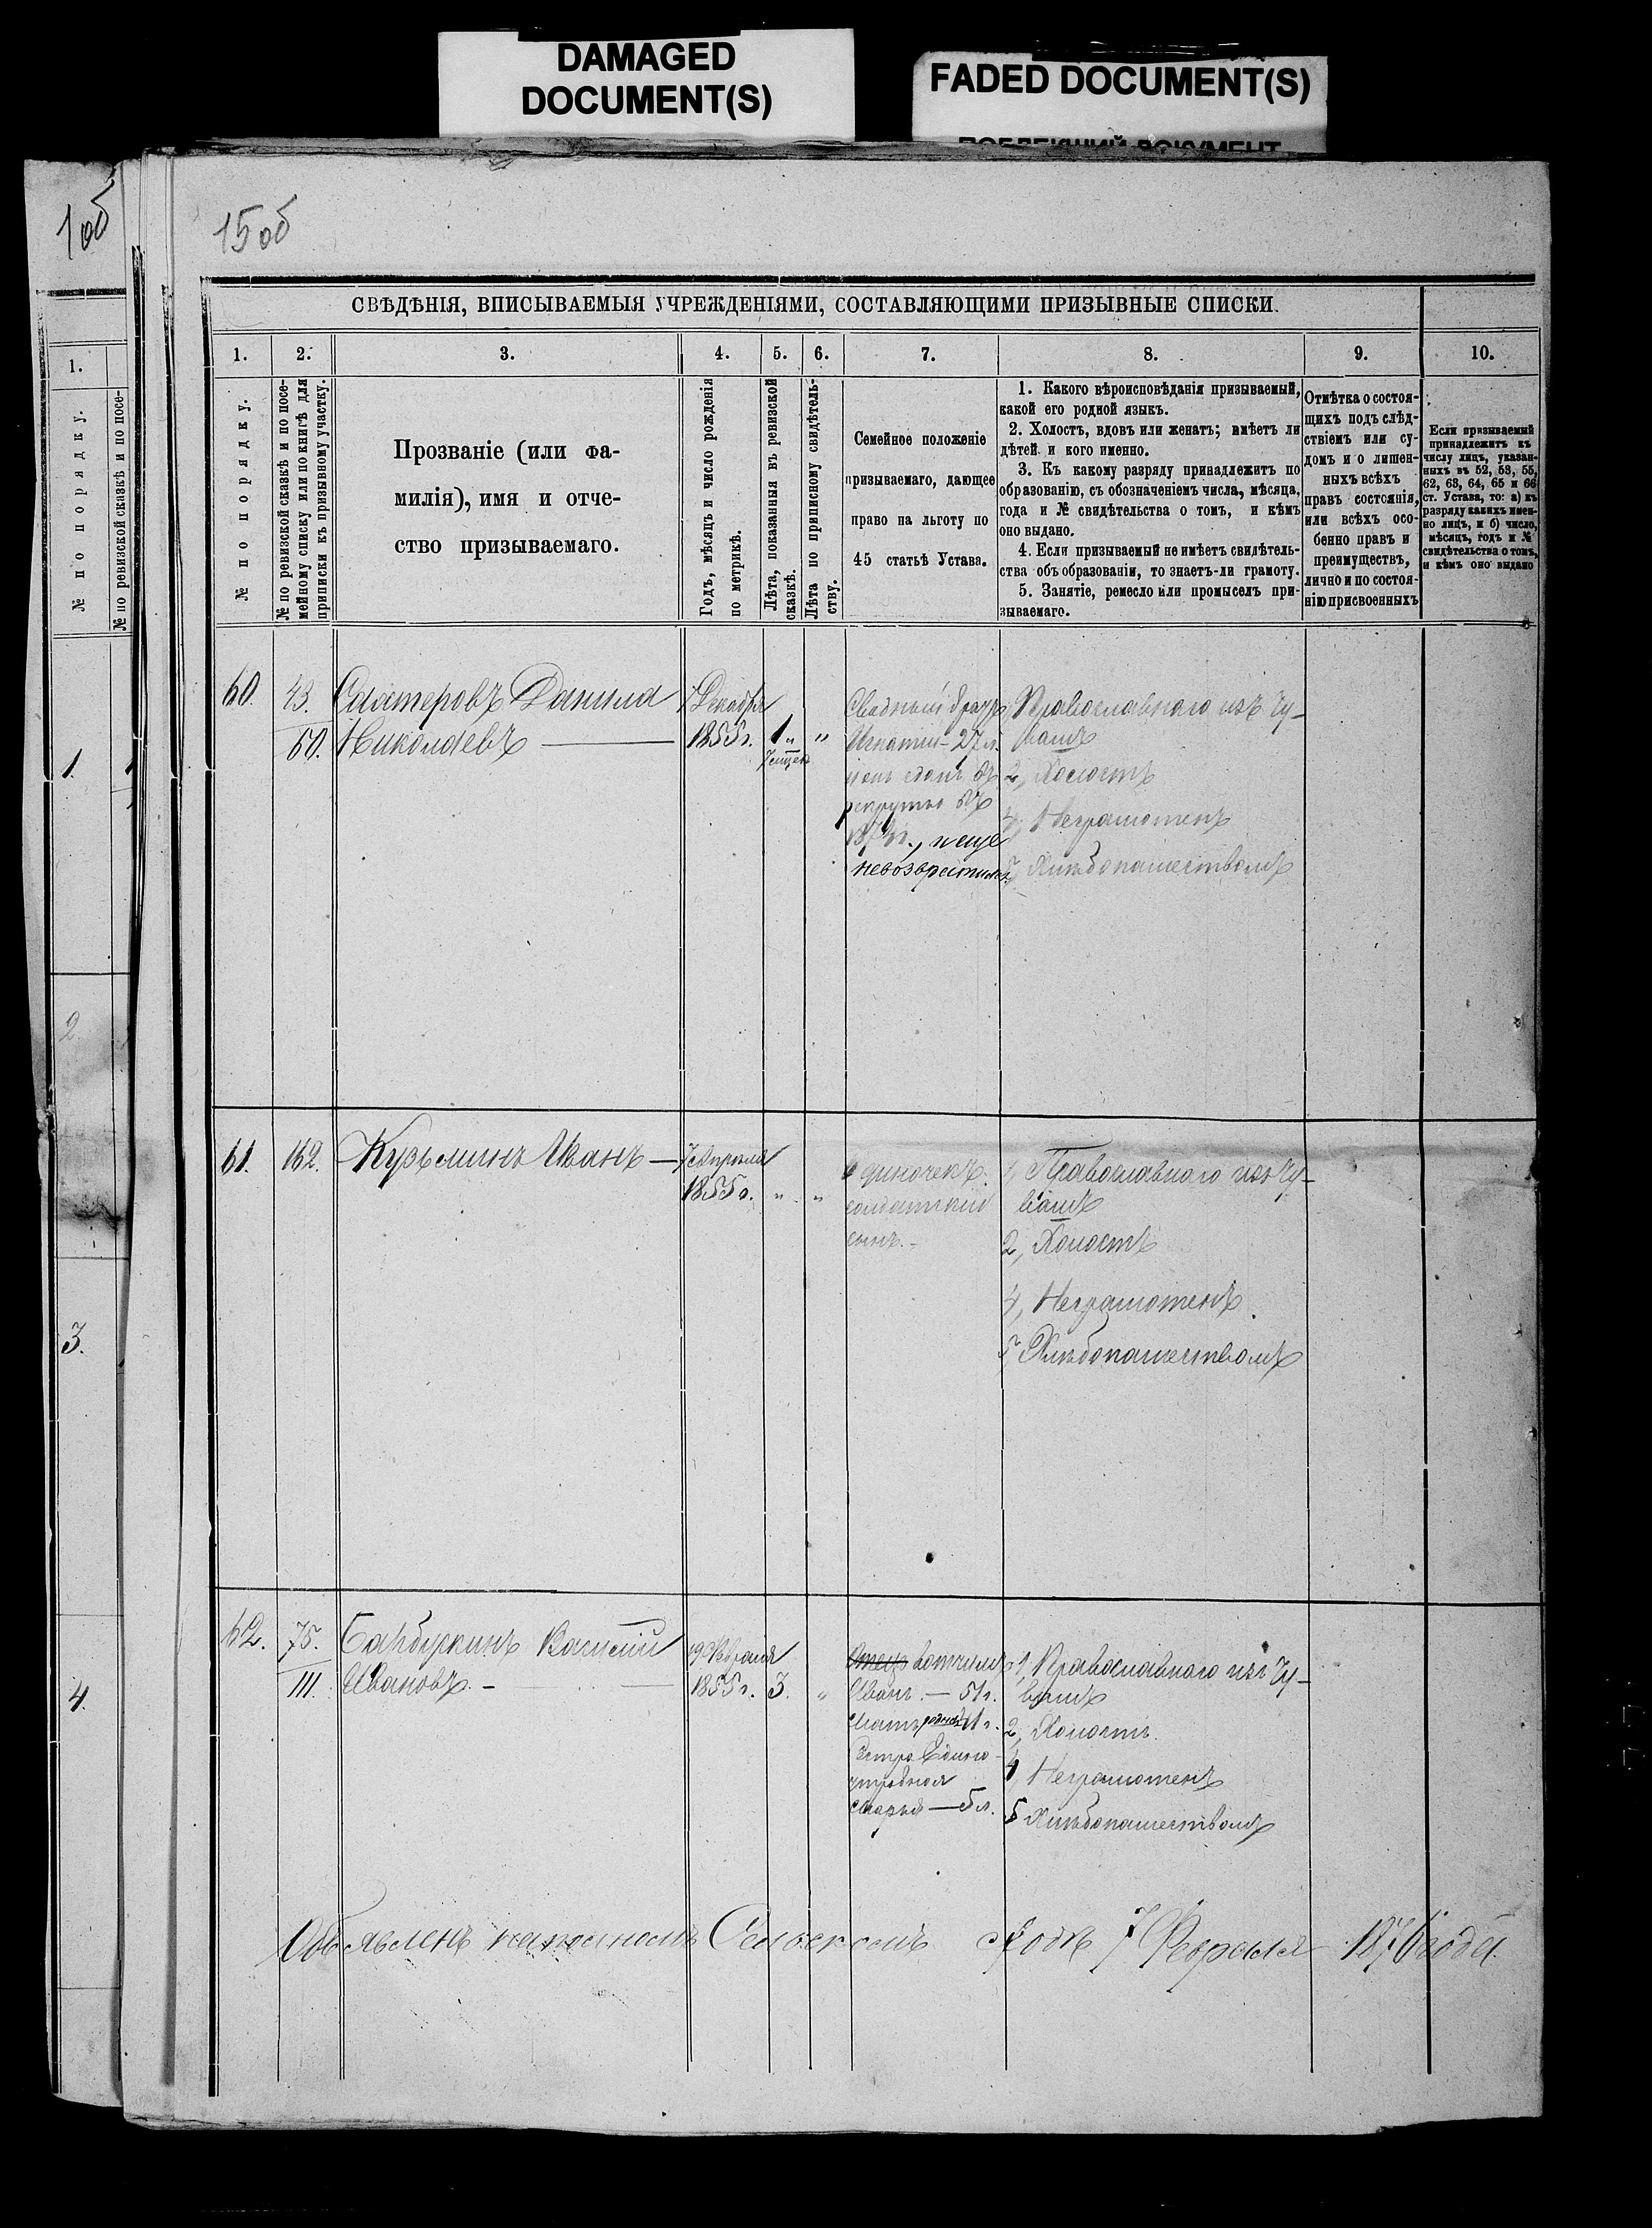 DAMAGED
DOCUMENT(S)
FADED DOCUMENT(S)
1об
15об
СВѢДѢНІЯ, ВПИСЫВАЕМЫЯ УЧРЕЖДЕНІЯМИ, СОСТАВЛЯЮЩИМИ ПРИЗЫВНЫЕ СПИСКИ.
1. 2. 3. 4. 5. 6. 7. 8. 9. 10.
№ по порядку.
№ по ревизской сказкѣ и по посе-
мейному списку или по книгѣ для
приписки къ призывному участку.
Прозваніе (или фа-
милія), имя и отче-
ство призываемаго.
Годъ, мѣсяцъ и число рожденія
по метрикѣ.
Лѣта, показанныя въ ревизской
сказкѣ.
Лѣта по приписному свидѣтель-
ству.
Семейное положеніе
призываемаго, дающее
право на льготу по
45 статьѣ Устава.
1. Какого вѣроисповѣданія призываемый,
какой его родной языкъ.
2. Холостъ, вдовъ или женатъ; имѣетъ ли
дѣтей и кого именно.
3. Къ какому разряду принадлежитъ по
образованію, съ обозначеніемъ числа, мѣсяца,
года и № свидѣтельства о томъ, и кѣмъ
оно выдано.
4. Если призываемый не имѣетъ свидѣтель-
ства объ образованіи, то знаетъ-ли грамоту.
5. Занятіе, ремесло или промыселъ при-
зываемаго.
Отмѣтка о состоя-
щихъ подъ слѣд-
ствіемъ или су-
домъ и о лишен-
ныхъ всѣхъ
правъ состоянія,
или всѣхъ осо-
бенно правъ и
преимуществъ,
лично и по состоя-
нію присвоенныхъ
Если призываемый
принадлежитъ къ
числу лицъ, указан-
ныхъ въ 52, 53, 55,
62, 63, 64, 65 и 66
ст. Устава, то: а) къ
разряду какихъ имен-
но лицъ, и б) число,
мѣсяцъ, годъ и №
свидѣтельства о томъ,
и кѣмъ оно выдано
1.
№ по порядку.
№ по ревизской сказкѣ и по посе-
1.
2
3.
4.
60. 43. Данила
60. Николаевъ
7 Декабря
1855 г. 1 „ „
Сводный братъ
Игнатий - 27 л.
сданъ въ
рекруты въ
и еще
невозвратился
Православнаго изъ Чу-
вашъ
2, Холостъ
4, Неграмотенъ
5 Хлѣбопашествомъ
61. 162. Кузьминъ Иванъ —
7 Апрѣля
1855 г. „ „
Одиночекъ.
солдатскій
сынъ.-
1, Православнаго изъ Чу-
вашъ
2, Холостъ
4, Неграмотенъ
5 Хлѣбопашествомъ
62. 75. Василій
111. Ивановъ. -
19 Февраля
1855 г. 3. „
Отецъ вотчимъ
Иванъ. — 51 г.
Мать
Сестра Едино-
утробная
Марья — 5 л.
1, Православнаго изъ Чу-
вашъ
2, Холостъ.
4, Неграмотенъ
5 Хлѣбопашествомъ
Объявленъ Сельскомъ сходѣ 7 Февраля 1876 года.